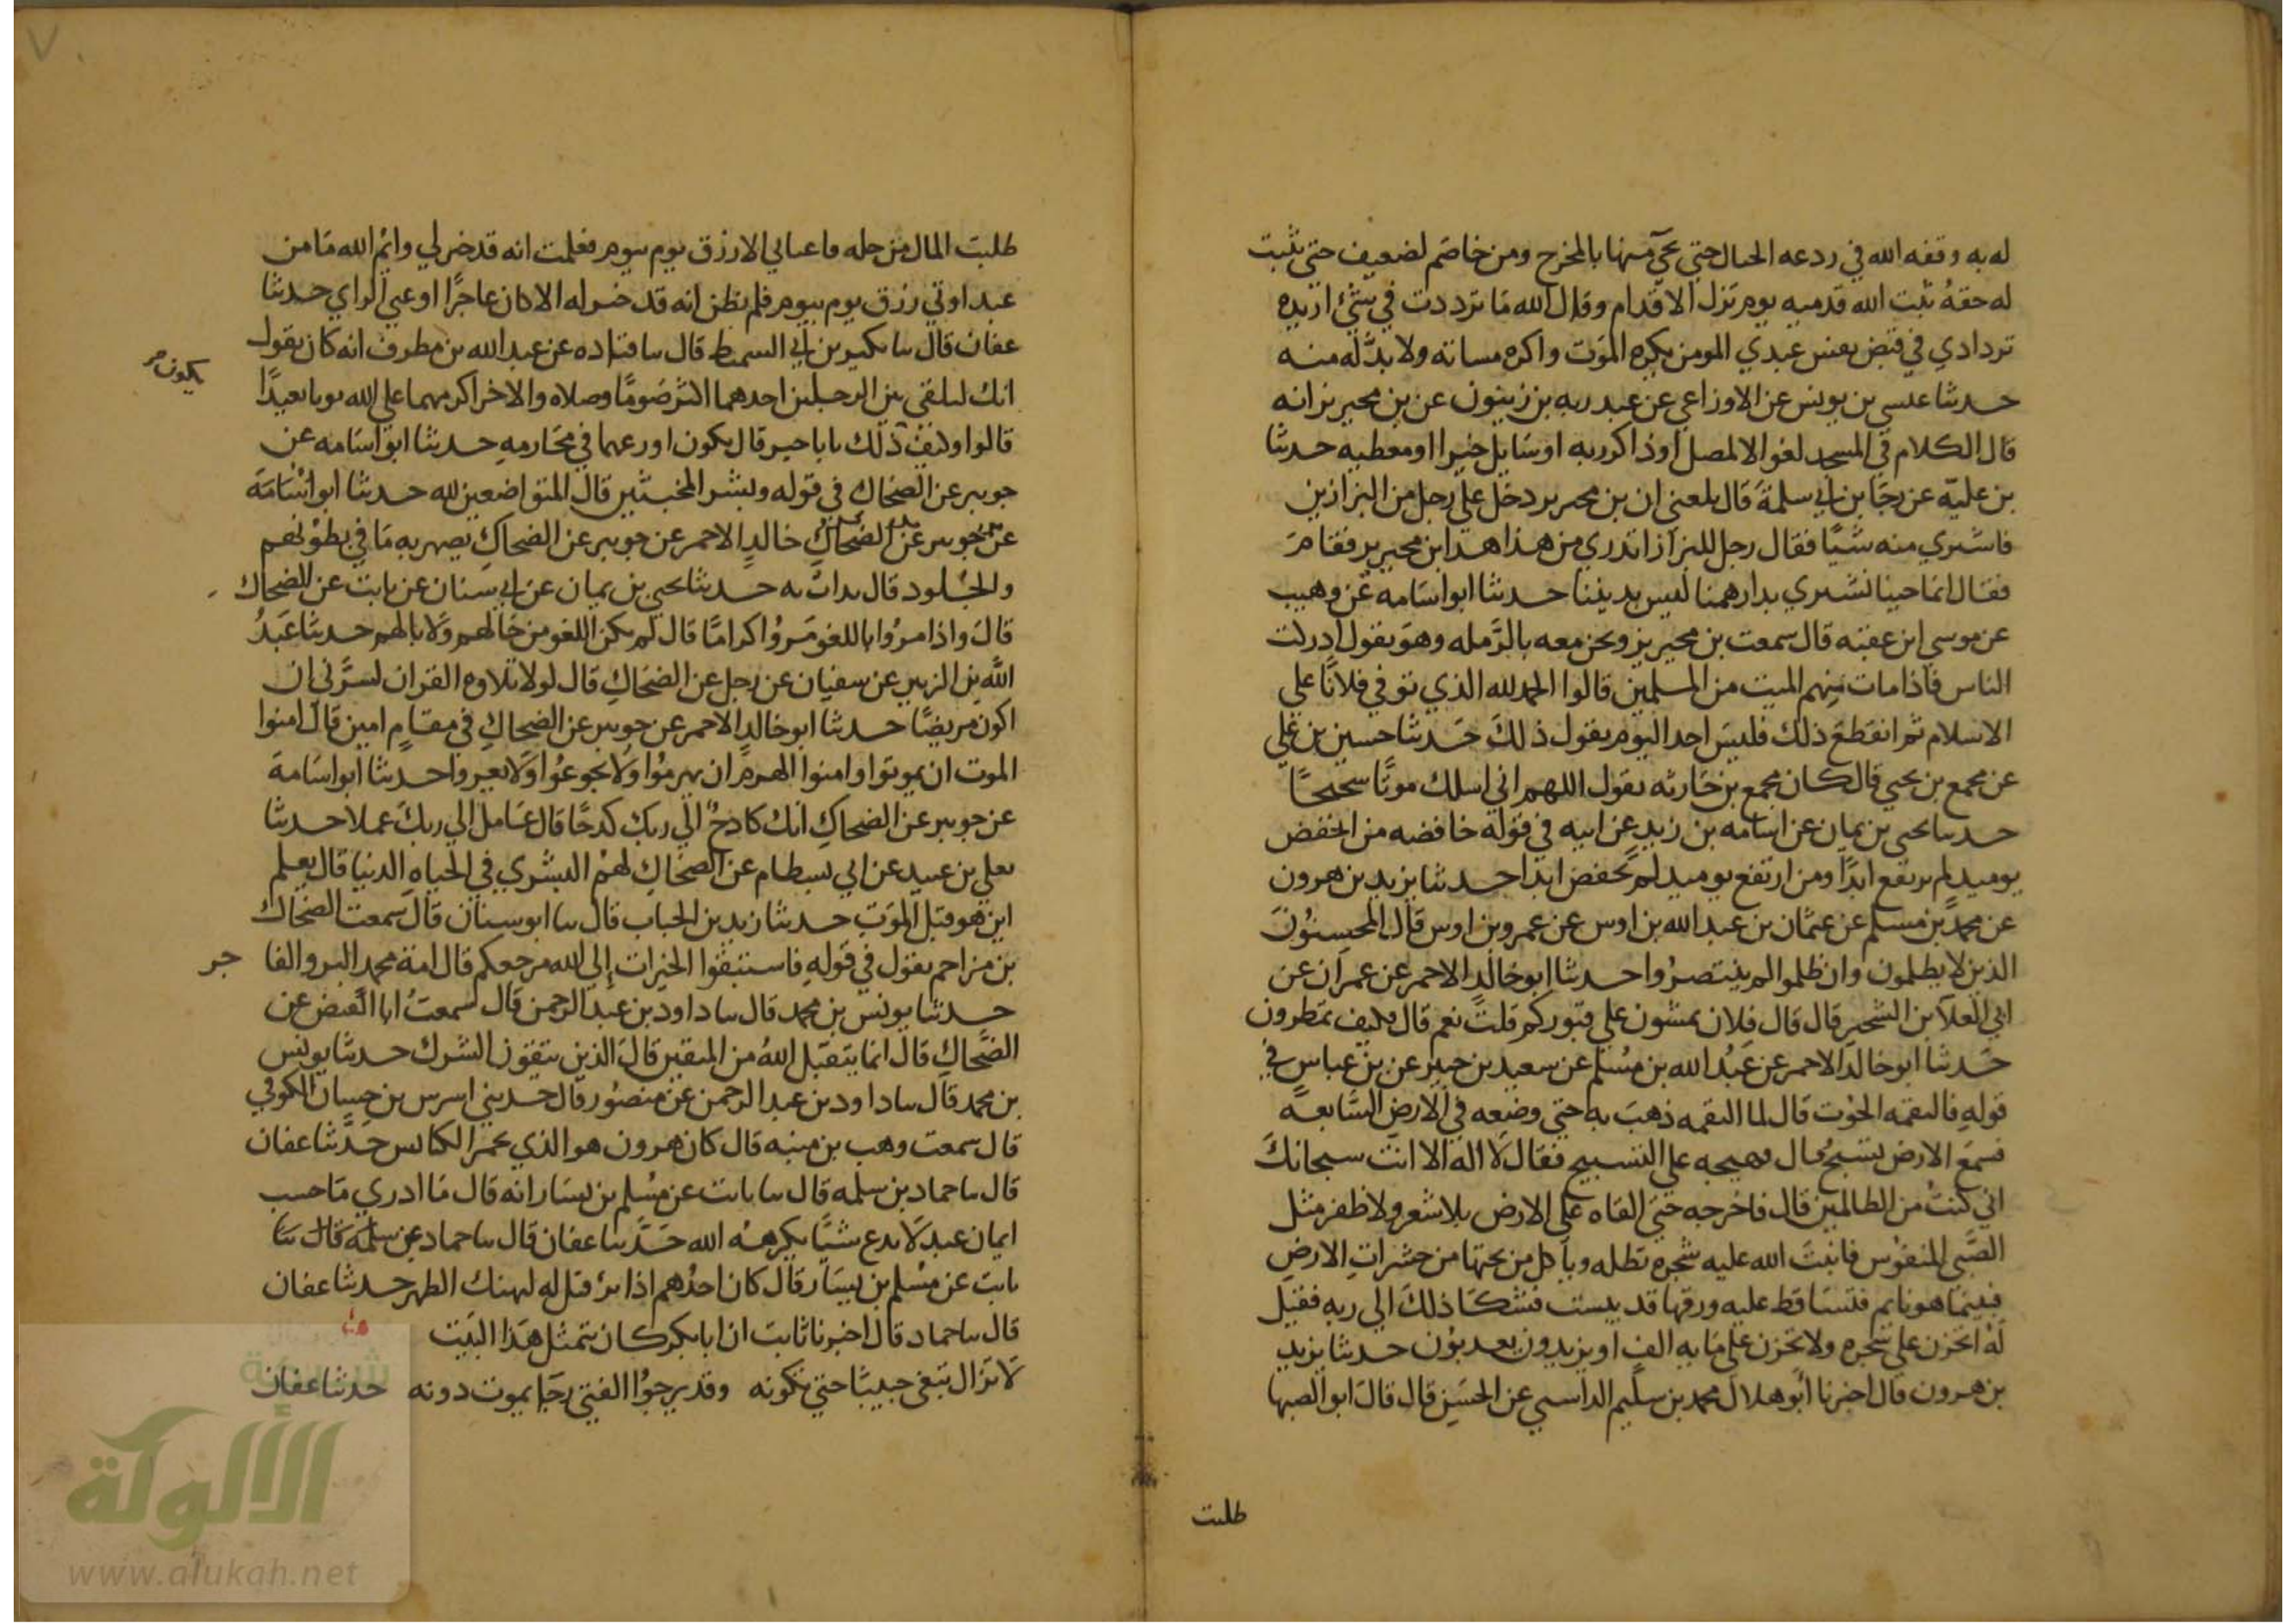 له به وقفه الله في ردعه الخبال حتي يجي منها بالمخرج ومن خاصم لضعيف حتي يثبت
له حقه ثبت الله قدميه يوم تزل الاقدام وقال الله ما ترددت في شئ اريده
تردادي في قبض نفس عبدي المومن يكره الموت واكره مساته ولا بد له منه
حدثنا عيسي بن يونس عن الاوزاعي عن عبد ربه بن زيتون عن بن محيريز انه
قال الكلام في المسجد لغو الا لمصل او ذاكر ربه او سايل خيرا او معطيه حدثنا
بن علية عن رجا بن ابي سلمة قال بلغني ان بن محيريز دخل علي رجل من البزازين
فاشتري منه شيا فقال رجل للبزاز اتدري من هذا هذا ابن محيريز فقام
فقال انما جينا نشتري بدراهمنا ليس بديننا حدثنا ابو اسامه عن وهيب
عن موسي ابن عقبه قال سمعت بن محيريز ونحن معه بالرمله وهو يقول ادركت
الناس فاذا مات منهم الميت من المسلمين قالوا الحمد لله الذي توفي فلانا علي
الاسلام ثم انقطع ذلك فليس احد اليوم يقول ذلك حدثنا حسين بن علي
عن مجمع بن يحيي قال كان مجمع بن جاريه يقول اللهم اني اسلك موتا سجيحا
حدثنا يحيي بن يمان عن اسامه بن زيد عن ابيه في قوله خافضه من انخفض
يوميذ لم يرتفع ابدا ومن ارتفع يوميذ لم ينخفض ابدا حدثنا يزيد بن هرون
عن محمد بن مسلم عن عثمان بن عبد الله بن اوس عن عمرو بن اوس قال المحسنون
الذين لا يظلمون وان ظلموا لم ينتصروا حدثنا ابو خالد الاحمر عن عمران عن
ابي العلا بن الشخير قال قال فلان يمشون علي قبوركم قلت نعم قال فكيف تمطرون
حدثنا ابو خالد الاحمر عن عبد الله بن مسلم عن سعيد بن جبير عن بن عباس في
قوله فالتقمه الحوت قال لما التقمه ذهب به حتي وضعه في الارض السابعه
فسمع الارض تسبح قال فهيجه علي التسبيح فقال لا اله الا انت سبحانك
اني كنت من الظالمين قال فاخرجه حتي القاه علي الارض بلا شعر ولا ظفر مثل
الصبي المنفوس فانبتت الله عليه شجره تظله وياكل من تحتها من حشرات الارض
فبينما هو نايم فتساقط عليه ورقها قد يبست فشكا ذلك الي ربه فقيل
له اتحزن علي شجره ولا تحزن علي مايه الف او يزيدون يعذبون حدثنا يزيد
بن هرون قال اخبرنا ابو هلال محمد بن سليم الراسبي عن الحسن قال قال ابو الصهبا
طلبت
طلبت المال من حله فاعياني الا رزق يوم بيوم فعلمت انه قد خير لي وايم الله ما من
عبد اوتي رزق يوم بيوم فلم يظن انه قد خير له الا كان عاجزا او عيي الراي حدثنا
عفان قال سا بكير بن ابي السميط قال سا قتاده عن عبد الله بن مطرف انه كان يقول
انك لتلقي بين الرجلين احدهما اكثر صوما وصلاه والاخر اكرمهما علي الله بونا بعيدا
يكون
قالوا وكيف ذلك يابا جير قال يكون اورعهما في محارمه حدثنا ابو اسامه عن
جويبر عن الضحاك في قوله وبشر المخبتين قال المتواضعين لله حدثنا ابو اسامة
عن جويبر عن الضحاك خالد الاحمر عن جويبر عن الضحاك يصهر به ما في بطونهم
والجلود قال يذاب به حدثنا يحيي بن يمان عن ابي سنان عن ثابت عن الضحاك
قال واذا مروا باللغو مروا كراما قال لم يكن اللغو من حالهم ولا بالهم حدثنا عبد
الله بن الزبير عن سفيان عن رجل عن الضحاك قال لولا تلاوه القران لسرني ان
اكون مريضا حدثنا ابو خالد الاحمر عن جويبر عن الضحاك في مقام امين قال امنوا
الموت ان يموتوا وامنوا الهرم ان يهرموا ولا يجوعوا ولا يعروا حدثنا ابو اسامة
عن جويبر عن الضحاك انك كادح الي ربك كدحا قال عامل الي ربك عملا حدثنا
يعلي بن عبيد عن ابي بسطام عن الضحاك لهم البشري في الحياه الدنيا قال يعلم
اين هو قبل الموت حدثنا زيد بن الحباب قال سا ابو سنان قال سمعت الضحاك
بن مزاحم يقول في قوله فاستبقوا الخيرات الي الله مرجعكم قال امة محمد البر والفا جر
حدثنا يونس بن محمد قال سا داود بن عبد الرحمن قال سمعت ابا الفيض عن
الضحاك قال انما يتقبل الله من المتقين قال الذين يتقون الشرك حدثنا يونس
بن محمد قال سا داود بن عبد الرحمن عن منصور قال حدثني اسرس بن حسان الكوفي
قال سمعت وهب بن منبه قال كان هرون هو الذي يجمر الكنايس حدثنا عفان
قال سا حماد بن سلمه قال سا ثابت عن مسلم بن يسار انه قال ما ادري ما حسب
ايمان عبد لا يدع شيا يكرهه الله حدثنا عفان قال سا حماد عن سلمه قال سا
ثابت عن مسلم بن يسار قال كان احدهم اذا برئ قيل له ليهنك الطهر حدثنا عفان
قال سا حماد قال اخبرنا ثابت ان ابا بكر كان يتمثل هذا البيت
لا تزال تبغي حبيبا حتي تكونه وقد يرجوا الفتي رجا يموت دونه حدثنا عفان
الألوكة
www.alukah.net